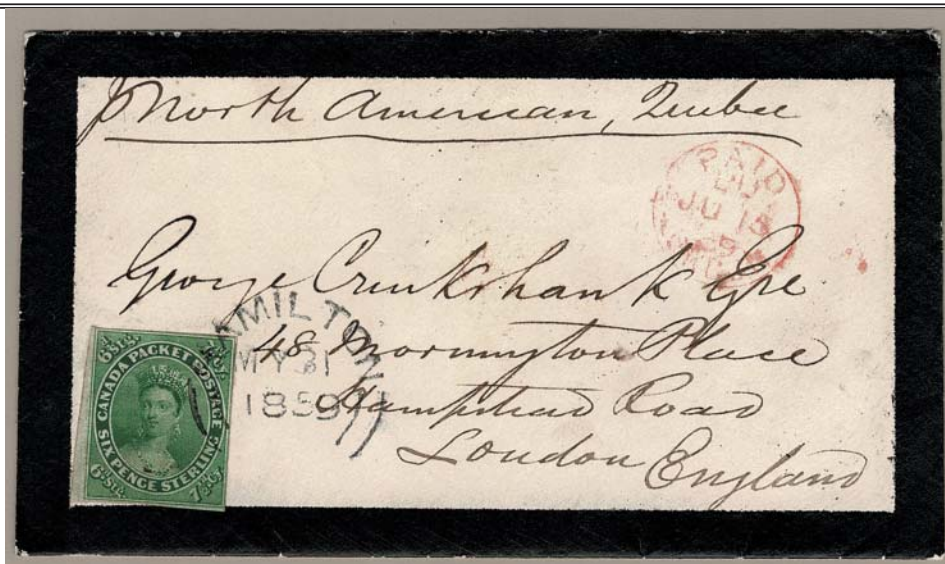 p North American, Quebec
PAID
JU 15
George Cruikshank Esqre
48 Mornington Place
Hampstead Road
London England
HAMILTON
MY 31
1859
CANADA PACKET POSTAGE
SIX PENCE STERLING
6d Stg.
7½d Cy.
6d Stg.
7½d Cy.